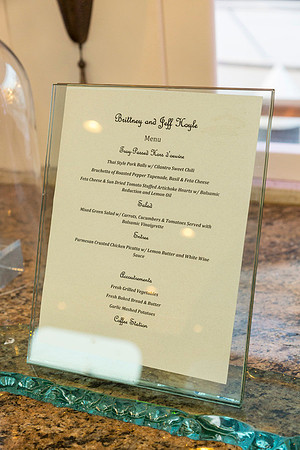 Brittney and Jeff Hoyle
Menu
Tray Passed Hors d'oeuvre
Thai Style Pork Balls w/ Cilantro Sweet Chili
Bruchetta of Roasted Pepper Tapenade, Basil & Feta Cheese
Feta Cheese & Sun Dried Tomato Stuffed Artichoke Hearts w/ Balsamic
Reduction and Lemon Oil
Salad
Mixed Green Salad w/ Carrots, Cucumbers & Tomatoes Served with
Balsamic Vinaigrette
Entrée
Parmesan Crusted Chicken Picatta w/ Lemon Butter and White Wine
Sauce
Accoutrements
Fresh Grilled Vegetables
Fresh Baked Bread & Butter
Garlic Mashed Potatoes
Coffee Station